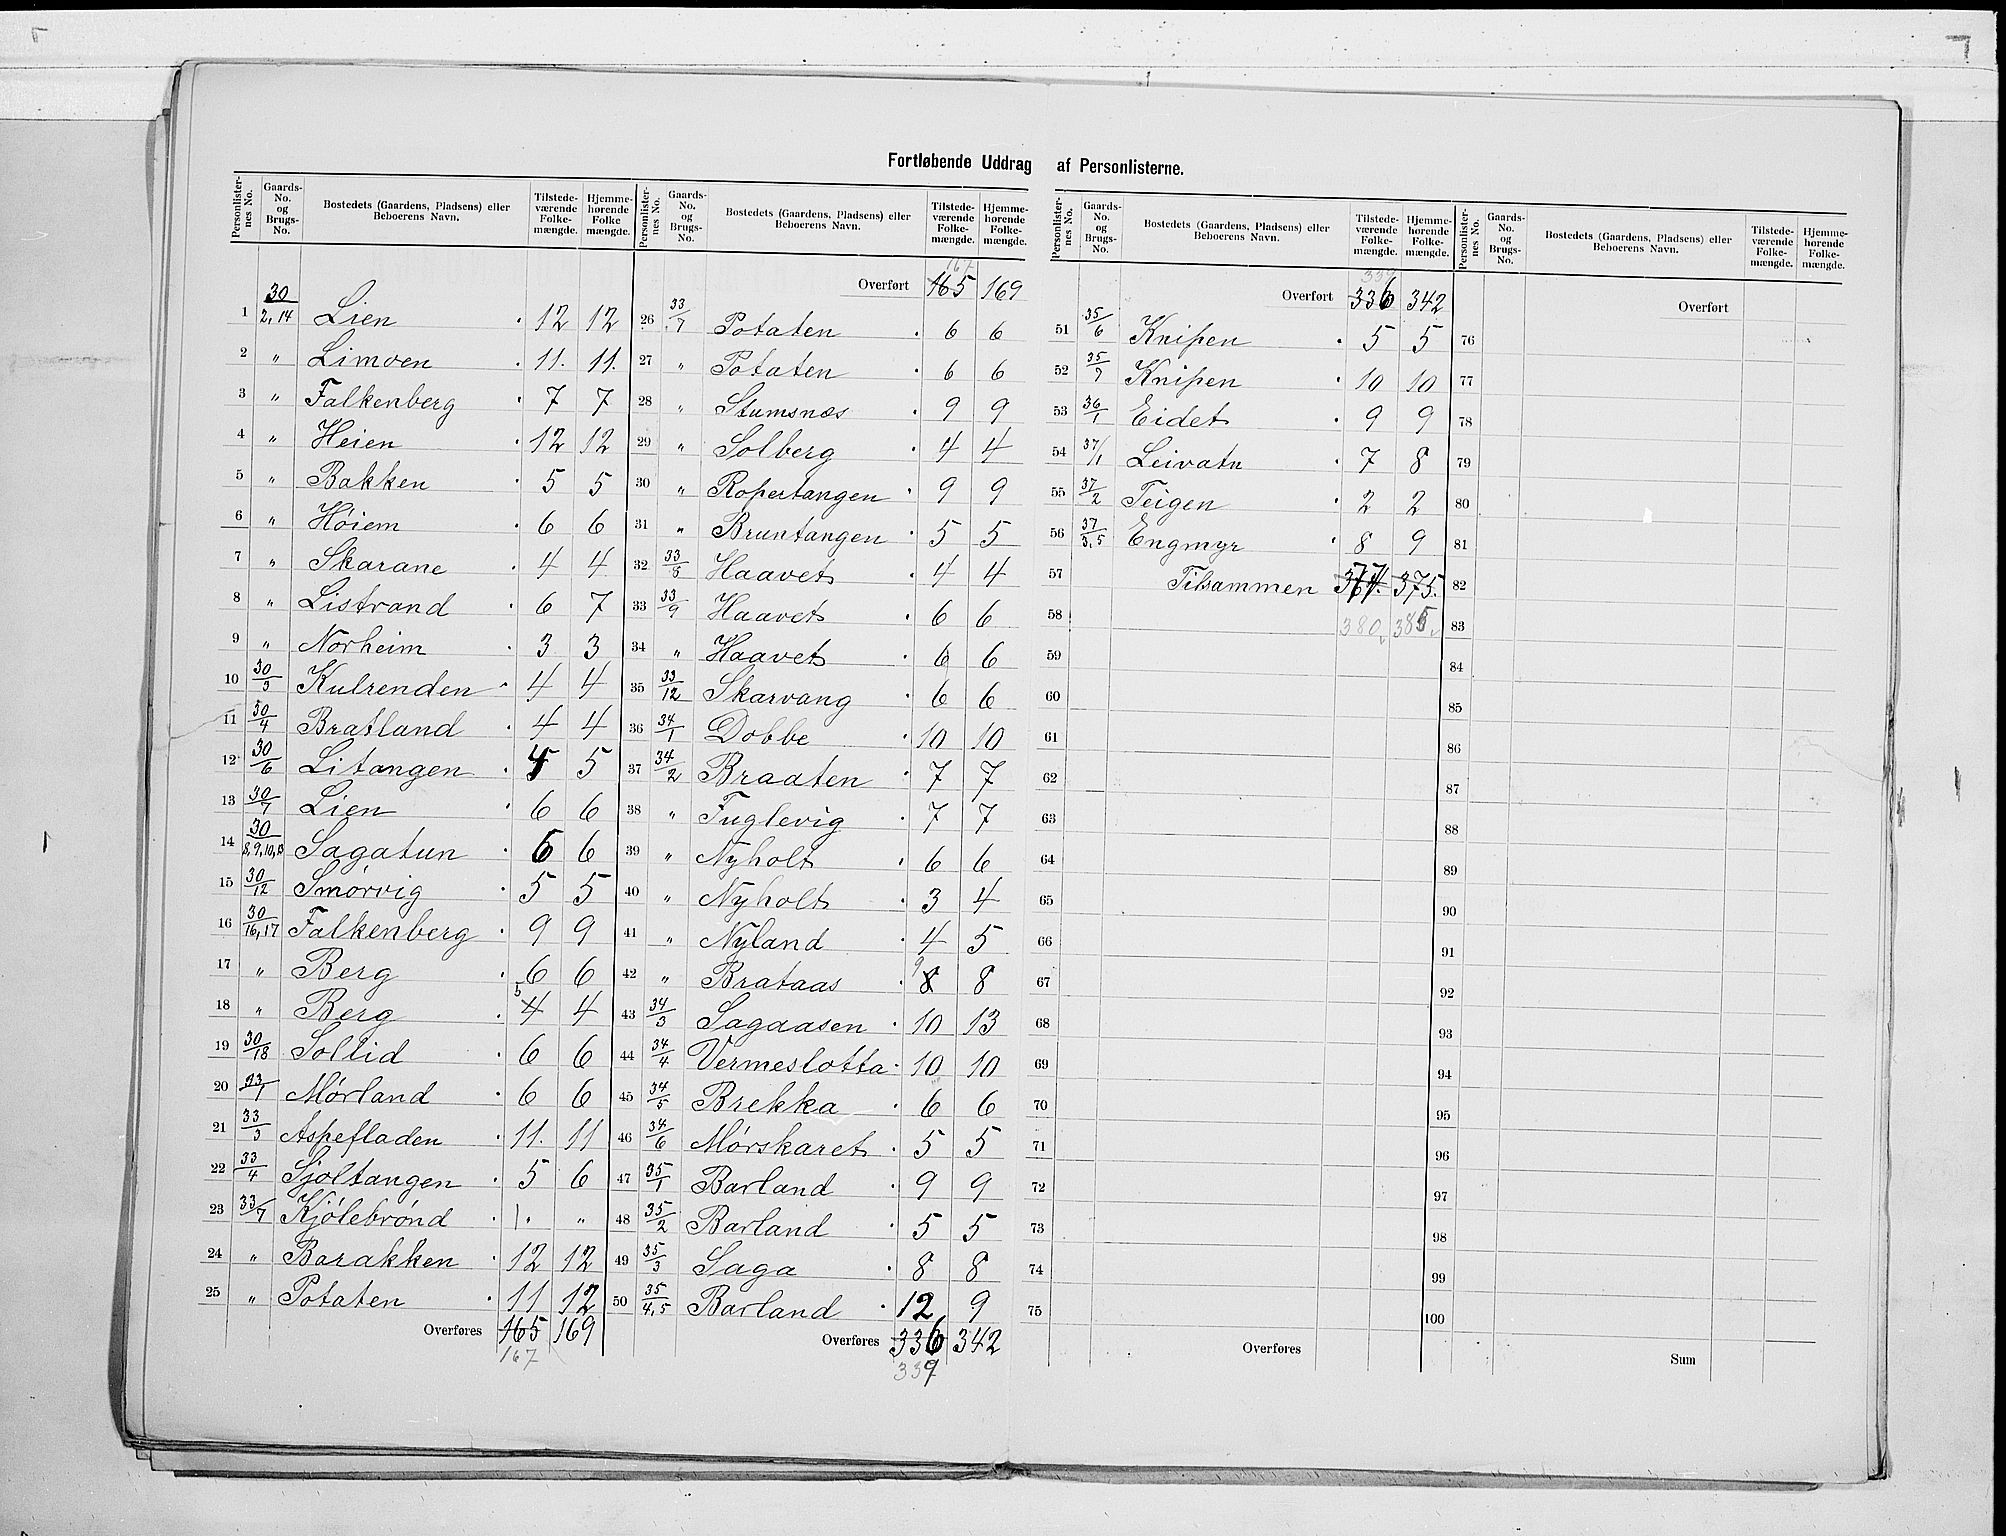 Fortløbende Uddrag af Personlisterne.
Personlisternes No. | Gaards-No. og Brugs-No. | Bostedets (Gaardens, Pladsens) eller Beboerens Navn. | Tilstedeværende Folkemængde. | Hjemmehørende Folkemængde.
1 30/2,14 Lien 12 12
2 " Limoen 11. 11.
3 " Falkenberg 7 7
4 " Heien 12 12
5 " Bakken 5 5
6 " Høiem 6 6
7 " Skarane 4 4
8 " Listrand 6 7
9 " Norheim 3 3
10 30/3 Kulrenden 4 4
11 30/4 Bratland 4 4
12 30/6 Litangen 5
13 30/7 Lien 6 6
14 30/8,9,10,13 Sagatun 6 6
15 30/12 Smørvig 5 5
16 30/16,17 Falkenberg 9 9
17 " Berg 6 6
18 " Berg 5 4 4
19 30/18 Sollid 6 6
20 33/1 Mørland 6 6
21 33/3 Aspefladen 11. 11
22 33/4 Sjoltangen 5 6
23 33/7 Kjølebrønd 1. "
24 " Barakken 12 12
25 " Potaten 11 12
Overføres 165 169
167
Personlisternes No. | Gaards-No. og Brugs-No. | Bostedets (Gaardens, Pladsens) eller Beboerens Navn. | Tilstedeværende Folkemængde. | Hjemmehørende Folkemængde.
167
Overført 165 169
26 33/7 Potaten 6 6
27 " Potaten 6 6
28 " Stumsnæs 9 9
29 " Solberg 4 4
30 " Ropertangen 9 9
31 " Bruntangen 5 5
32 33/8 Haavet 4 4
33 33/9 Haavet 6 6
34 " Haavet 6 6
35 33/12 Skarvang 6 6
36 34/1 Dobbe 10 10
37 34/2 Braaten 7 7
38 " Fuglevig 7 7
39 " Nyholt 6 6
40 " Nyholt 3 4
41 " Nyland 4 5
42 " Brataas 9 8 8
43 34/3 Sagaasen 10 13
44 34/4 Vermeslotta 10 10
45 34/5 Brekka 6 6
46 34/6 Mørskaret 5 5
47 35/1 Barland 9 9
48 35/2 Barland 5 5
49 35/3 Saga 8 8
50 35/4,5 Barland 12 9
Overføres 336 342
339
Personlisternes No. | Gaards-No. og Brugs-No. | Bostedets (Gaardens, Pladsens) eller Beboerens Navn. | Tilstedeværende Folkemængde. | Hjemmehørende Folkemængde.
339
Overført 336 342
51 35/6 Knipen 5 5
52 35/7 Knipen 10 10
53 36/1 Eidet 9 9
54 37/1 Leivatn 7 8
55 37/2 Teigen 2 2
56 37/3,5 Engmyr 8 9
57 Tilsammen 377. 375.
58 380 385
59
60
61
62
63
64
65
66
67
68
69
70
71
72
73
74
75
Overføres
Personlisternes No. | Gaards-No. og Brugs-No. | Bostedets (Gaardens, Pladsens) eller Beboerens Navn. | Tilstedeværende Folkemængde. | Hjemmehørende Folkemængde.
Overført
76
77
78
79
80
81
82
83
84
85
86
87
88
89
90
91
92
93
94
95
96
97
98
99
100
Sum